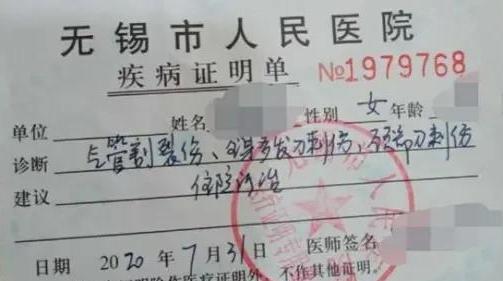 无锡市人民医院
疾病证明单 №1979768
单位 姓名 性别 女 年龄
诊断 气管割裂伤、全身多发刀刺伤、颈部刀刺伤
建议 住院诊治
日期 2020年7月31日 医师签名
除作医疗证明外,不作其他证明。